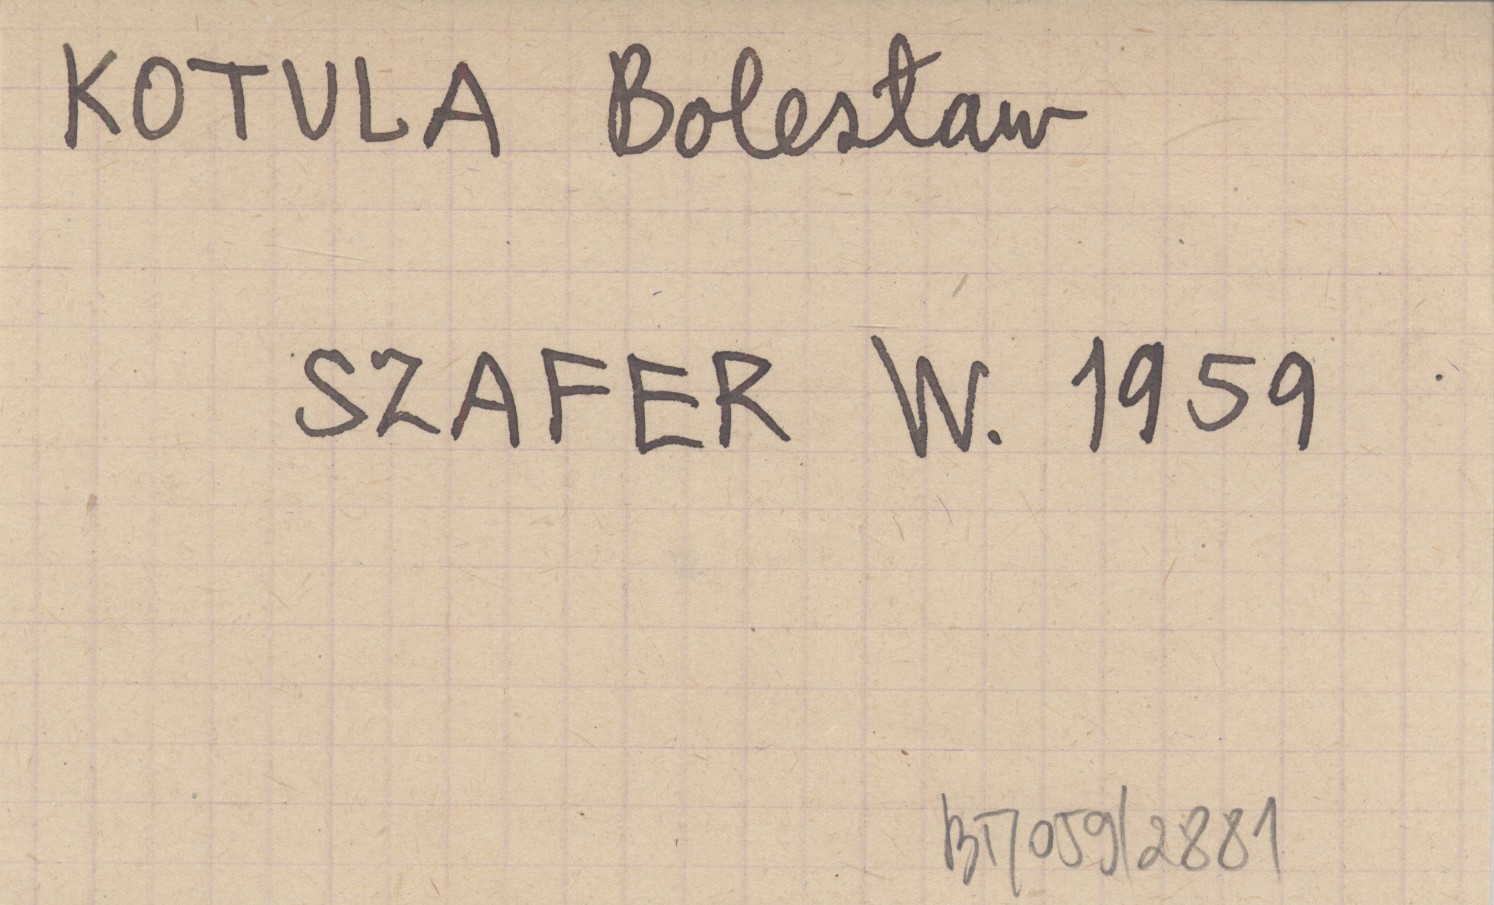 KOTULA Bolesław
SZAFER W. 1959
BT/059/2881